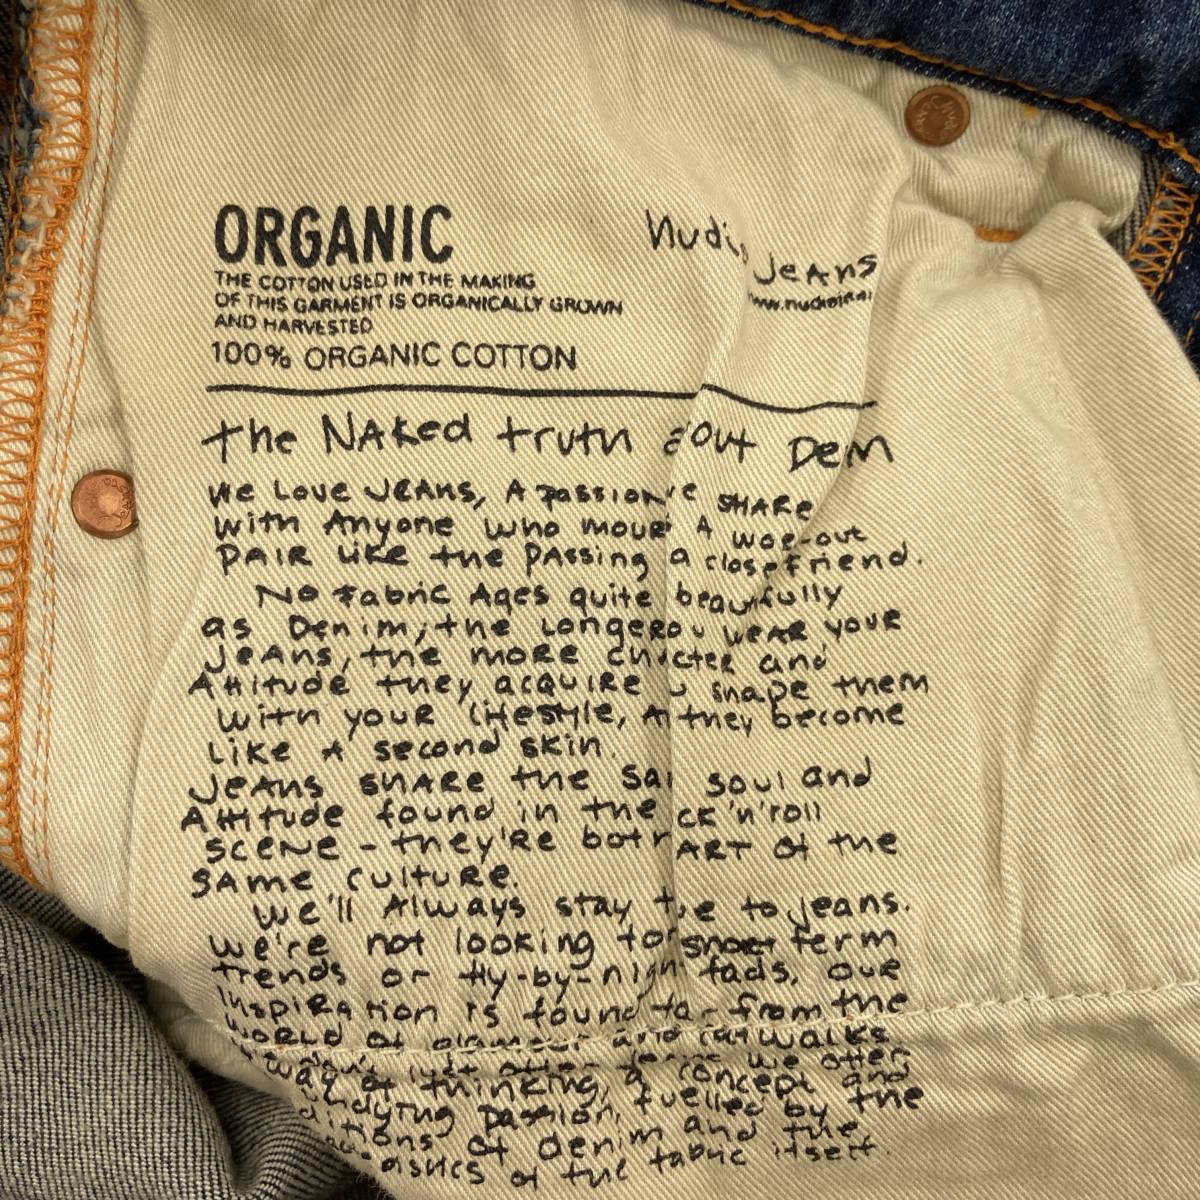 ORGANIC
THE COTTON USED IN THE MAKING
OF THIS GARMENT IS ORGANICALLY GROWN
AND HARVESTED
100% ORGANIC COTTON
Nudie
Jeans
the NAked truth about Denim
We Love JEANS, A passion we SHARE
with Anyone who A
PAIR like the PAssing a close friend.
No Fabric Ages quite beautifully
as Denim, the Longer you WEAR your
JEANS, the moRE and
Attitude they acquiRE shape them
with your lifestyle, they become
Like A second skin.
JEANS shARE the soul and
Attitude found in the 'n'roll
SCENE - they'RE both PART of the
SAME CULTURE.
We'll Always stay true to Jeans.
We're not looking for short term
trends or fly-by-night fads, our
INSPIRAtion is found far from the
WORLD of glamour and catwalks
we offer
way of thinking, a concept and
undying passion, fuelled by the
of denim and the
of the fabric itself.